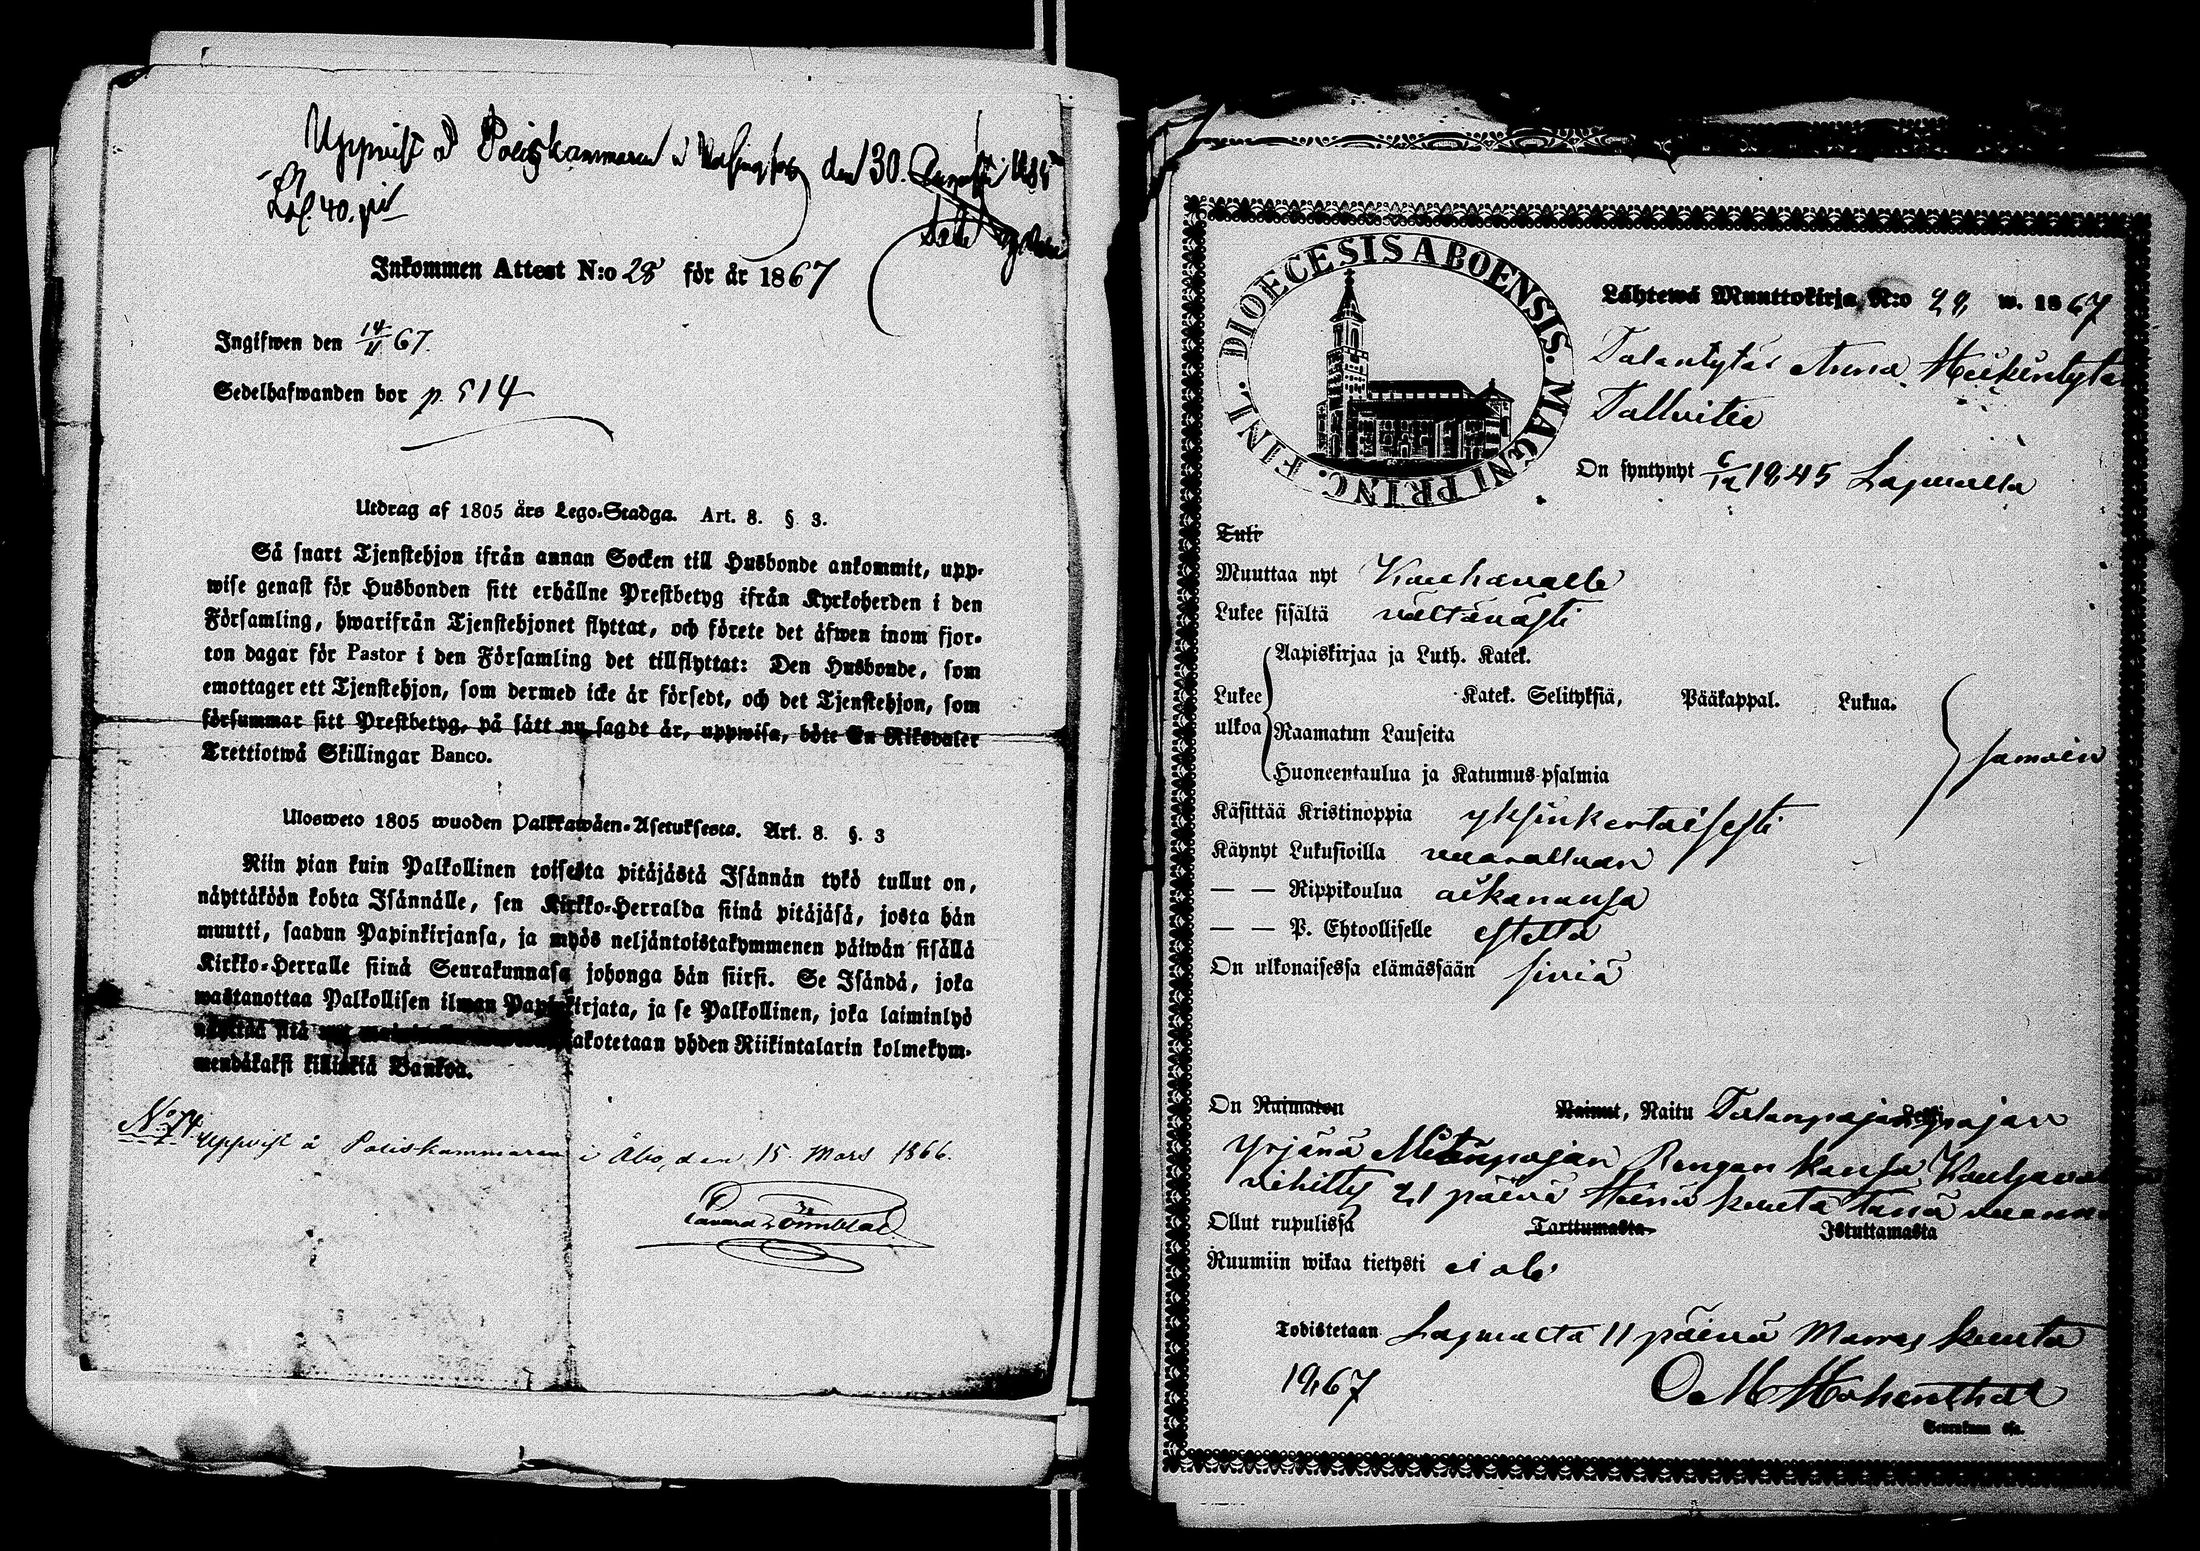 Uppvist å Poliskammaren i Helsingfors den 30.
Inkommen Attest N:o 28 för år 1867
Ingifwen den 14/11 67.
Sedelhafwanden bor p. 514
Utdrag af 1805 års Lego-Stadga. Art. 8. § 3.
Så snart Tjenstehjon ifrån annan Socken till Husbonde ankommit, upp-
wise genast för Husbonden sitt erhållne Prestbetyg ifrån Kyrkoherden i den
Församling, hwarifrån Tjenstehjonet flyttat, och förete det äfwen inom fjor-
ton dagar för Pastor i den Församling det tillflyttat: Den Husbonde, som
emottager ett Tjenstehjon, som dermed icke är försedt, och det Tjenstehjon, som
försummar sitt Prestbetyg, på sätt nu sagdt är, uppwisa, böte En Riksdaler
Trettiotwå Skillingar Banco.
Ulosweto 1805 wuoden Palkkawäen-Asetuksesta. Art. 8. §. 3
Niin pian kuin Palkollinen toisesta pitäjästä Isännän tykö tullut on,
näyttäköön kohta Isännälle, sen Kirkko-Herralda siinä pitäjäsä, josta hän
muutti, saadun Papinkirjansa, ja myös neljäntoistakymmenen päiwän sisällä
Kirkko-Herralle siinä Seurakunnasa johonga hän siirsi. Se Isändä, joka
wastanottaa Palkollisen ilman Papinkirjata, ja se Palkollinen, joka laiminlyö
näyttää sitä akotetaan yhden Riikintalarin kolmekym-
mendäkaksi killinkiä Bankoa.
No 74. Uppvist å Poliskammaren i Åbo, den 15 Mars 1866.
DIOECESIS ABOENSIS. MAGNI PRINC. FINL.
Lähtewä Muuttokirja, N:o 28 w. 1867
Talantytär Anna Heikintytär
Tallvitie
On syntynyt 6/12 1845 Lapualla
Tuli
Muuttaa nyt Kauhavalle
Lukee sisältä välttävästi
Aapiskirjaa ja Luth. Katek.
Lukee ulkoa
Katek. Selityksiä, Pääkappal. Lukua.
Raamatun Lauseita
Huoneentaulua ja Katumus-psalmia
samoin
Käsittää Kristinoppia yksinkertaisesti
Käynyt Lukusioilla vuorollaan
— — Rippikoulua aikanansa
— — P. Ehtoolliselle estettä
On ulkonaisessa elämässään siviä
On Naimaton Nainut, Naitu
Yrjänä Rengan kansa
vihitty 21 päivä Heinä kuuta tänä vuonna
Ollut rupulissa Tarttumasta Istuttamasta
Ruumiin wikaa tietysti ei ole
Todistetaan Lapualta 11 päivä Marras kuuta
1867
Seurakunn